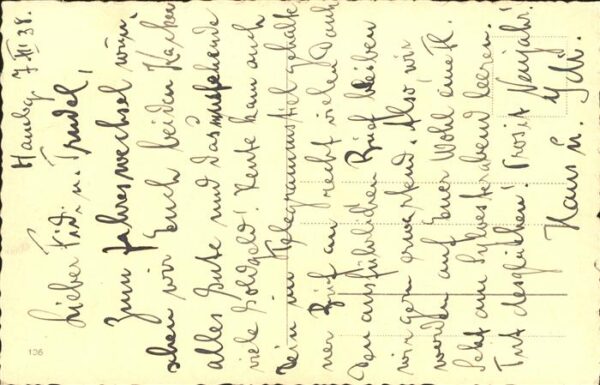 Hamburg 7. XII 38.
Lieber Frid. u. Trudel,
Zum Jahreswechsel wün-
schen wir Euch beiden
alles Gute und das
viele Goldgeld! Heute kam auch
Dein im Telegrammstil gehalte-
ner Brief an recht vielen Dank
Den ausführlichen Brief bleiben
wir gern erwartend. Also wir
werden auf Euer Wohl eine Fl.
Sekt am Sylvesterabend leeren.
Tut desgleichen! Prosit Neujahr!
Hans u.
136